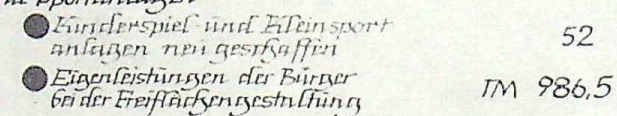 Kinderspiel und Kleinsport
anlagen neu geschaffen 52
Eigenleistungen der Bürger
bei der Freiflächengestaltung TM 986,5